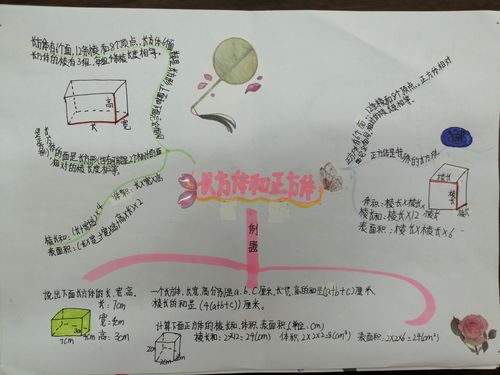 长方体有6个面,12条棱和8个顶点,长方体
长方体的棱有3组,每组4条棱长度相等。
高
长
宽
相对的棱长度相等。
体积:长×宽×高
棱长和:(长+宽+高)×4
表面积:(长×宽+
高)×2
长方体和正方体
例题
正方体有6个面,12条棱和8个顶点,正方体相对
正方体是特殊的长方体
棱长
棱长
棱长
体积:棱长×棱长×棱长
棱长和:棱长×12
表面积:棱长×棱长×6
说出下面长方体的长,宽,高。
长:7cm
宽:4cm
高:3cm
7cm
4cm
3cm
一个长方体,长,宽,高分别是a,b,c厘米,长,宽,高的和是(a+b+c)厘米
棱长的和是(4(a+b+c))厘米。
计算下面正方体的棱长和,体积,表面积(单位:cm)
棱长和:2×12=24(cm)
体积:2×2×2=8(cm³)
表面积:2×2×6=24(cm²)